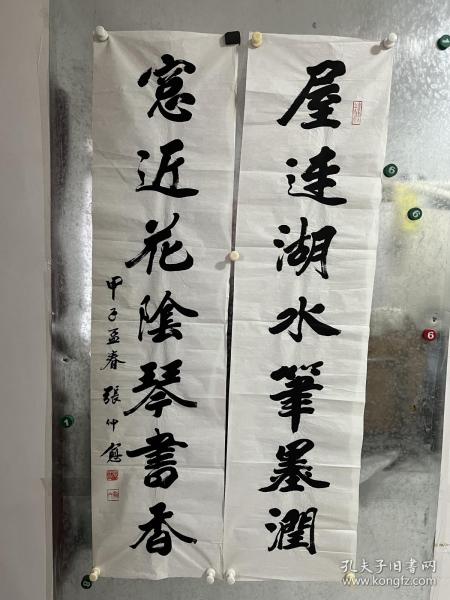 屋連湖水筆墨潤
窓近花陰琴書香
甲子孟春 張仲愈
6
6
6
1
8
孔夫子旧书网
www.kongfz.com